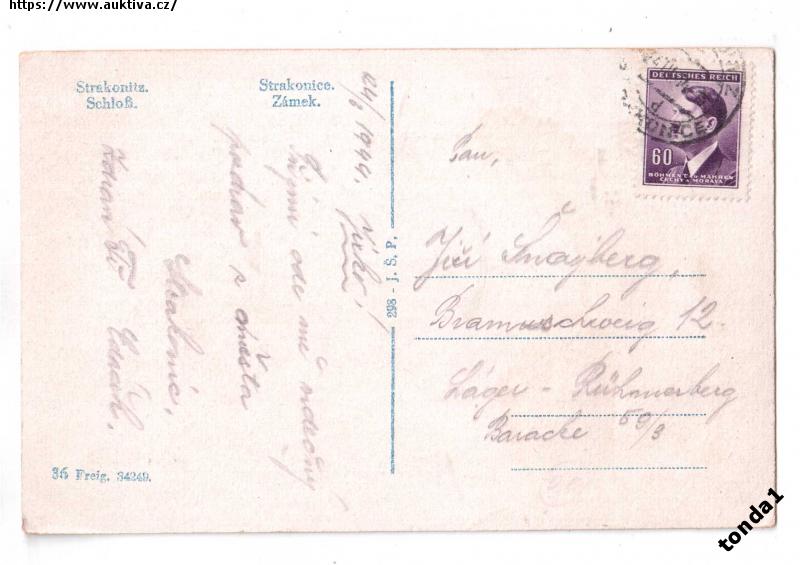 https://www.auktiva.cz/
Strakonitz.
Schloß.
Strakonice.
Zámek.
24/8 1944.
Jirko!
Přijmi ode mě srdečný
pozdrav z města
Strakonic,
Zdraví Tě
298 - J. Š. P.
36 Freig. 34249.
DEUTSCHES REICH
60
BÖHMEN U. MÄHREN
ČECHY A MORAVA
Pan,
Jiří Šnajberg,
Bramschweig 12.
Läger - Rühmerberg
Baracke 59/3
tonda1